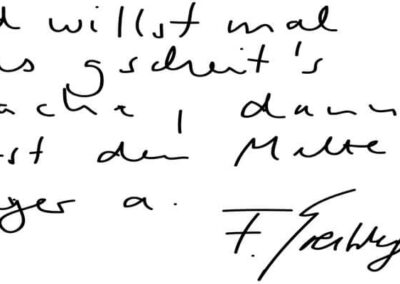 d willst mal
s gscheit's
ache, dann
st den Malte
ger a.
F.